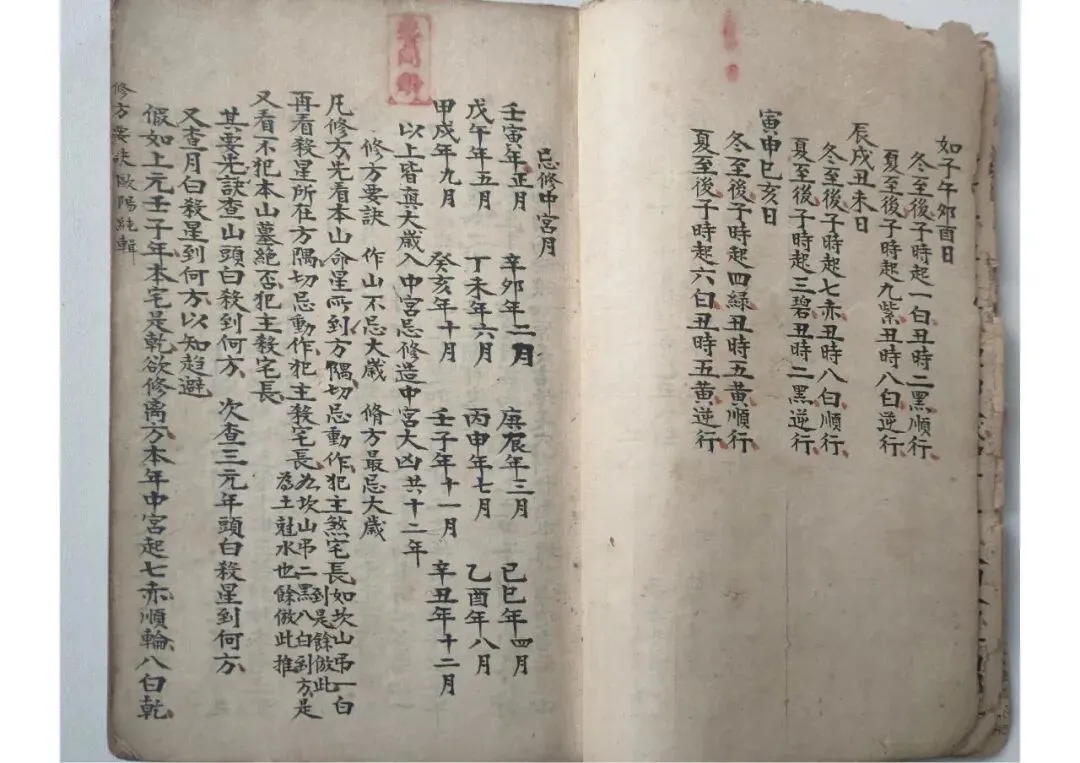 如子午卯酉日
冬至後子時起一白丑時二黑順行
夏至後子時起九紫丑時八白逆行
辰戌丑未日
冬至後子時起七赤丑時八白順行
夏至後子時起三碧丑時二黑逆行
寅申巳亥日
冬至後子時起四綠丑時五黃順行
夏至後子時起六白丑時五黃逆行
忌修中宮月
壬寅年正月 辛卯年二月 庚辰年三月 己巳年四月
戊午年五月 丁未年六月 丙申年七月 乙酉年八月
甲戌年九月 癸亥年十月 壬子年十一月 辛丑年十二月
以上皆真大歲入中宮忌修造中宮大凶共十二年
修方要訣 作山不忌大歲 脩方最忌大歲
凡修方先看本山命星所到方隅切忌動作犯主煞宅長如坎山吊一白
到是餘倣此
再看殺星所在方隅切忌動作犯主殺宅長如坎山吊二黑八白到方是
為土尅水也餘倣此推
又看不犯本山墓絕否犯主殺宅長
其要先訣查山頭白殺到何方 次查三元年頭白殺星到何方
又查月白殺星到何方以知趨避
假如上元壬子年本宅是乾欲修离方本年中宮起七赤順輪八白乾
修方要訣歐陽純輯